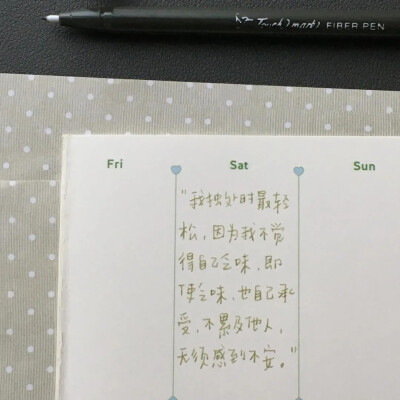 Touch mark FIBER PEN
Fri Sat Sun
"我独处时最轻
松,因为我不觉
得自己乏味,即
使乏味,也自己承
受,不累及他人,
无须感到不安。"